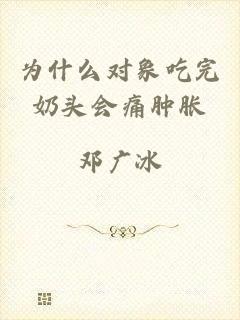 为什么对象吃完
奶头会痛肿胀
邓广冰